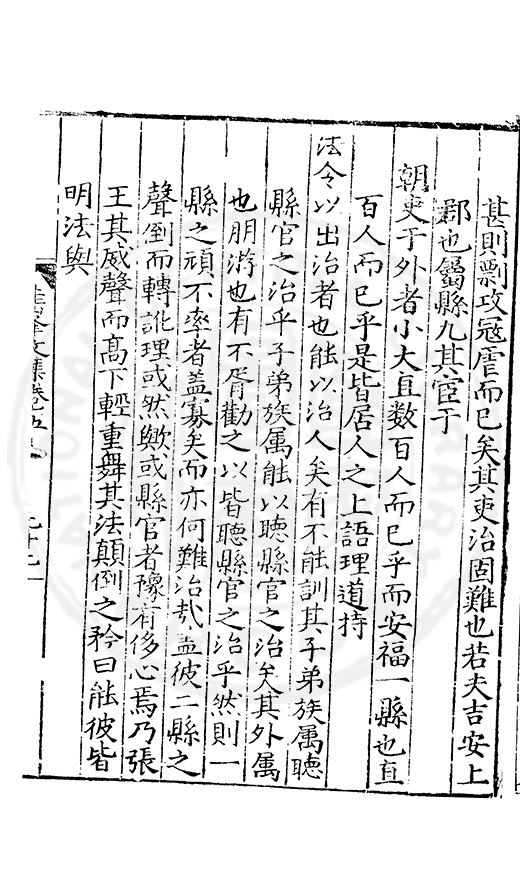 甚則剽攻冦虐而已矣其吏治固難也若夫吉安上
郡也屬縣九其宦于
朝吏于外者小大直数百人而已乎而安福一縣也直
百人而已乎是皆居人之上語理道持
法令以出治者也能以治人矣有不能訓其子弟族属聴
縣官之治乎子弟族属能以聴縣官之治矣其外属
也朋游也有不胥勸之以皆聴縣官之治乎然則一
縣之頑不率者盖寡矣而亦何難治㢤盖彼二縣之
聲倒而轉訛理或然歟或縣官者豫有侈心焉乃張
王其威聲而高下輕重舞其法顛倒之矜曰能彼皆
明法與
文集卷五